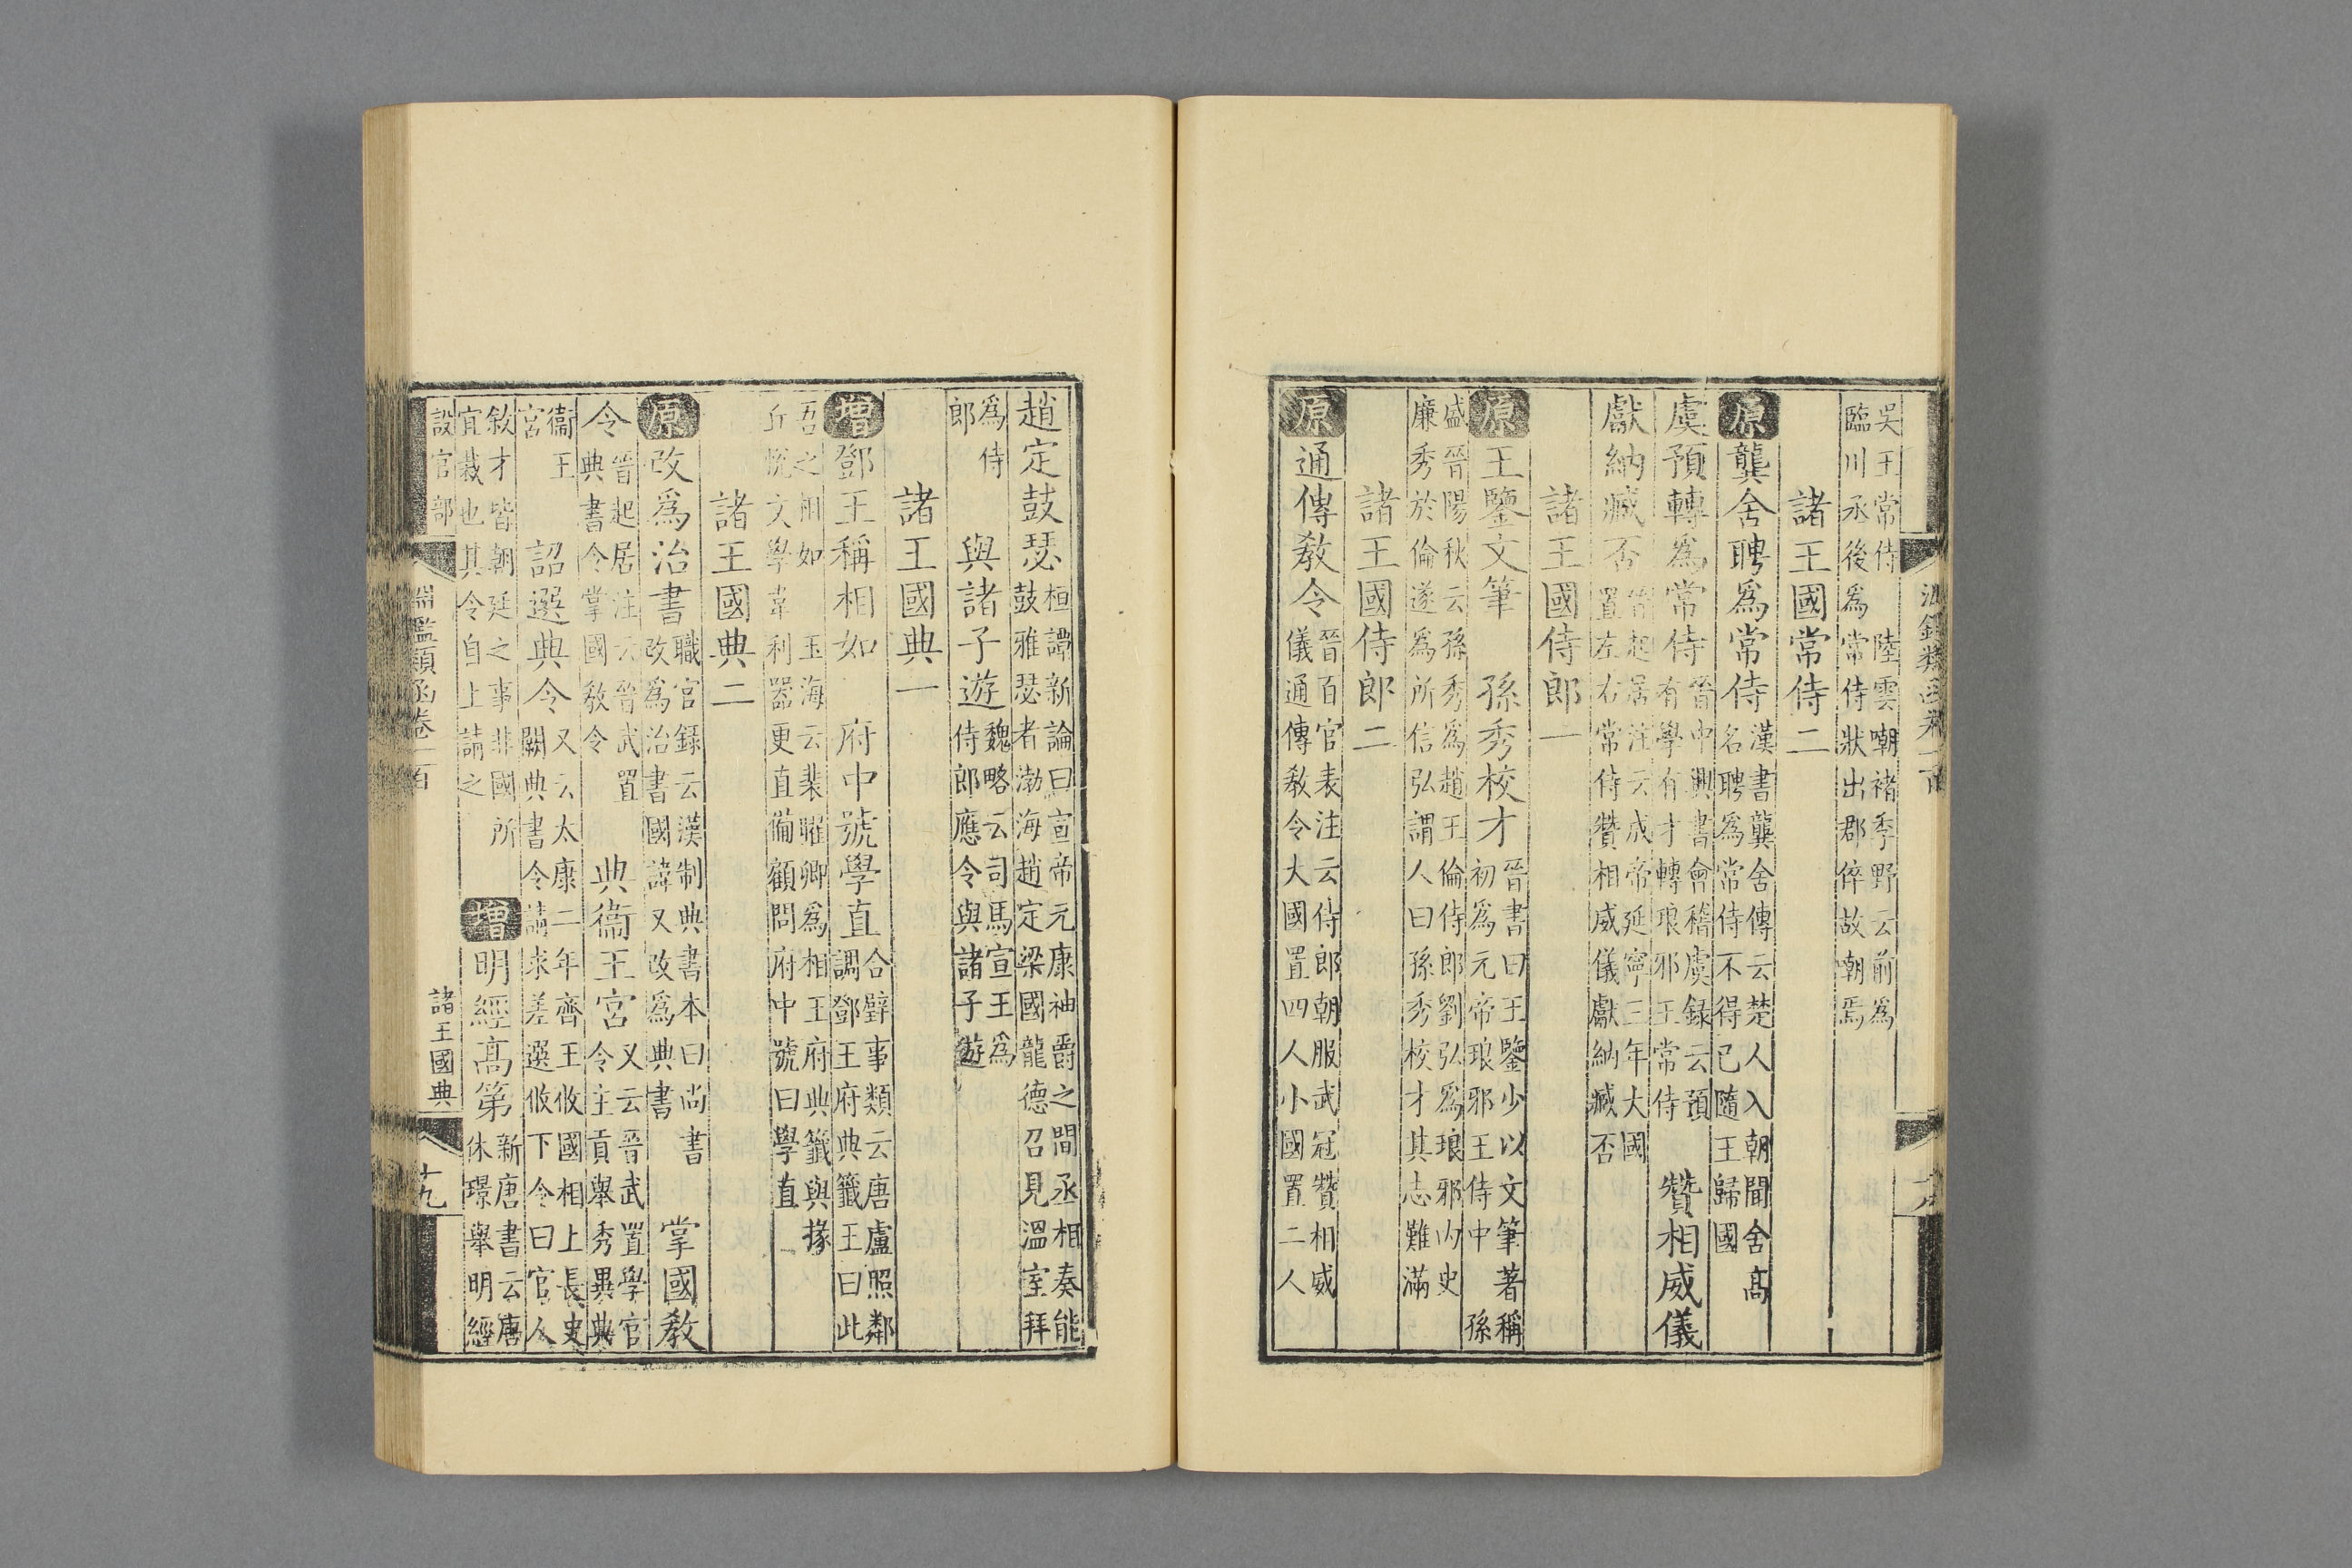 吳王常侍　陸雲嘲褚季野云前爲
臨川丞後爲常侍狀出郡倅故朝焉
諸王國常侍二
原龔舍聘爲常侍漢書龔舍傳云楚人入朝聞舍高
名聘爲常侍不得已隨王歸國
虞預轉爲常侍晉中興書會稽虞録云預
有學有才轉琅邪王常侍
贊相威儀
獻納臧否晉起居注云成帝延寧三年大國
置左右常侍贊相威儀獻納臧否
諸王國侍郎一
原王鑒文筆　孫秀校才晉書曰王鑒少以文筆著稱
初爲元帝琅邪王侍中　孫
盛晉陽秋云孫秀爲趙王倫侍郎劉弘爲琅邪内史
廉秀於倫遂爲所信弘謂人曰孫秀校才其志難滿
諸王國侍郎二
原通傳敎令晉百官表注云侍郎朝服武冠贊相威
儀通傳敎令大國置四人小國置二人
趙定鼓瑟桓譚新論曰宣帝元康神爵之間丞相奏能
鼓雅瑟者渤海趙定梁國龍德召見溫室拜
爲侍
郎
與諸子遊魏略云司馬宣王爲
侍郎應令與諸子遊
諸王國典一
增鄧王稱相如　府中號學直合璧事類云唐盧照鄰
調鄧王府典籤王曰此
吾之相如　玉海云裴耀卿爲相王府典籤與掾
丘悅文學韋利器更直備顧問府中號曰學直
諸王國典二
原改爲治書職官録云漢制典書本曰尚書
改爲治書國諱又改爲典書
掌國敎
令晉起居注云晉武置
典書令掌國敎令
典衞王宮又云晉武置學官
令主貢舉秀異典
衞王
宮
詔選典令又云太康二年齊王攸國相上長史
闕典書令請求差選攸下令曰官人
敘才皆朝廷之事非國所
宜裁也其令自上請之
增明經高第新唐書云唐
休璟舉明經
設官部
淵鑑類函卷一百
諸王國典
十九